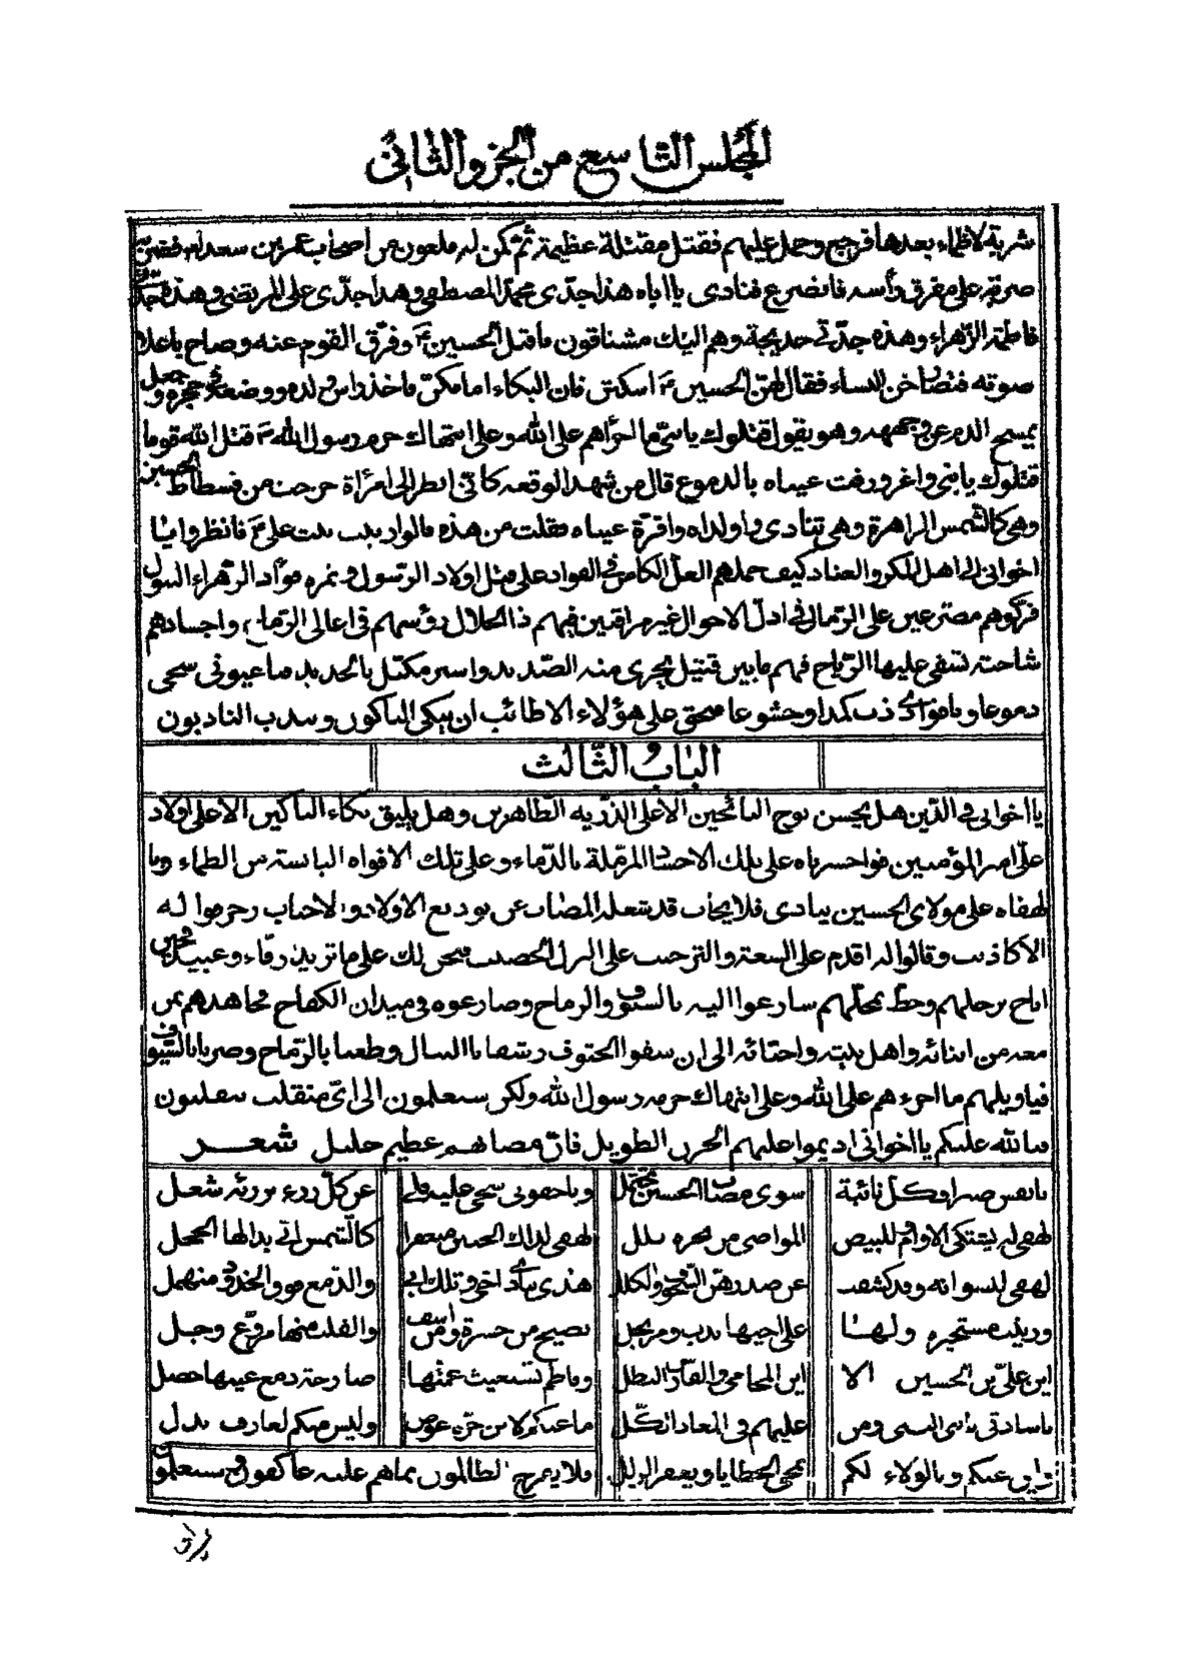 المجلس التاسع من الجزء الثاني
شربة لا ظماء بعدها فرجع وحمل عليهم فقتل مقتلة عظيمة ثم كمن له ملعون من اصحاب عمر بن سعد
ضربة على مفرق رأسه فانصرع فنادى يا اباه هذا جدى محمد المصطفى وهذا جدى على المرتضى وهذه جدتى
فاطمة الزهراء وهذه جدتى خديجة وهم اليك مشتاقون فاقبل الحسين وفرق القوم عنه وصاح باعلا
صوته فتصارخن النساء فقال لهن الحسين اسكتن فان البكاء امامكن فاخذ راس ولده ووضعه فى حجره وجعل
يمسح الدم عن وجهه وهو يقول قتلوك يا بنى ما اجرأهم على الله وعلى انتهاك حرم رسول الله قتل الله قوما
قتلوك يا بنى واغرورقت عيناه بالدموع قال من شهد الوقعة كانى انظر الى امرأة خرجت من فسطاط الحسين
وهى كالشمس الزاهرة وهى تنادى وا ولداه وا قرة عيناه فقلت من هذه قالوا زينب بنت على فانظروا يا
اخوانى الى اهل المكر والعناد كيف حملهم الغل الكامن فى الفواد على قتل اولاد الرسول وثمرة فؤاد الزهراء البتول
تركوهم مصترعين على الرمال فى اذل الاحوال غير مراقبين فيهم ذا الجلال رؤسهم فى اعالى الرماح واجسادهم
شاحتة تسفى عليها الرياح فهم ما بين قتيل يجرى منه الصديد واسير مكبل بالحديد فيا عيونى سحى
دموعا ويا فوادى ذب كمدا وخشوعا فحق على هؤلاء الاطائب ان يبكى الباكون ويندب النادبون
الباب الثالث
يا اخوانى فى الدين هل يحسن نوح النائحين الا على الذرية الطاهرين وهل يليق بكاء الباكين الا على اولاد
على امير المؤمنين فواحسرتاه على تلك الاجساد المرملة بالدماء وعلى تلك الافواه اليابسة من الظماء ويا
لهفاه على مولاى الحسين ينادى فلا يجاب قد شغله المصاب عن توديع الاولاد والاحباب زخرفوا له
الاكاذيب وقالوا له اقدم على السعة والترحيب على النزل الخصيب فنحن لك على ما تريد رفاء وعبيد فحين
اناخ برحلهم وحط بمحلهم سارعوا اليه بالسيوف والرماح وصارعوه فى ميدان الكفاح فجاهدهم بمن
معه من ابنائه واهل بيته واحبائه الى ان سقوا الحتوف رشقا بالنبال وطعنا بالرماح وضربا بالسيوف
فيا ويلهم ما اجرءهم على الله وعلى انتهاك حرمة رسول الله ولكن سيعلمون الى اى منقلب ينقلبون
فبالله عليكم يا اخوانى اديموا عليهم الحزن الطويل فان مصابهم عظيم جليل شعر
يا نفس صبرا فكل نائبة سوى مصاب الحسين تحتمل ويا جفونى سحى عليه عن كل زرء شغل
لهفى له يشتكى الاوام للبيض المواضى من نحره بلل لهفى لذاك الجبين منعفرا كالشمس
لهفى لنسوانه وقد كشفت عن صدرهن السجوف والكلل هذى تنادى اخى وتلك ابى والدمع فوق الخدود منهمل
وزينب مستجيرة ولها على اخيها تصيح من حسرة والقلب منها مروع وجل
اين على بن الحسين الا اين المحامى والفارس البطل وفاطم تستغيث عمتها صارخة دمع عينها خضل
يا سادتى يا بنى النبى ومن عليهم فى المعاد اتكل ما عنكم لابن حرة عوض وليس منكم لعارف بدل
وانى عبدكم وبالولاء لكم تمحى الخطايا ويغفر الزلل فلا يمرح الظالمون بما هم عليه عاكفون فسيعلمون